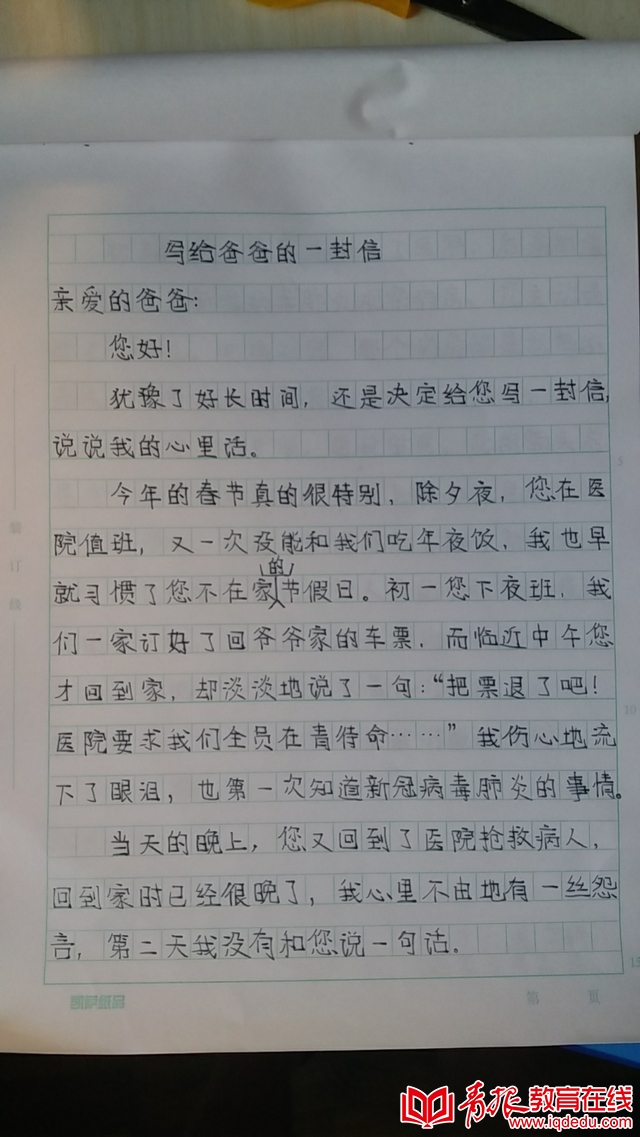 写给爸爸的一封信
亲爱的爸爸:
您好!
犹豫了好长时间,还是决定给您写一封信,
说说我的心里话。
今年的春节真的很特别,除夕夜,您在医
院值班,又一次没能和我们吃年夜饭,我也早
就习惯了您不在家的节假日。初一您下夜班,我
们一家订好了回爷爷家的车票,而临近中午您
才回到家,却淡淡地说了一句:“把票退了吧!
医院要求我们全员在青待命……”我伤心地流
下了眼泪,也第一次知道新冠病毒肺炎的事情。
当天的晚上,您又回到了医院抢救病人,
回到家时已经很晚了,我心里不由地有一丝怨
言,第二天我没有和您说一句话。
第 页
5
10
15
青报教育在线
www.iqdedu.com